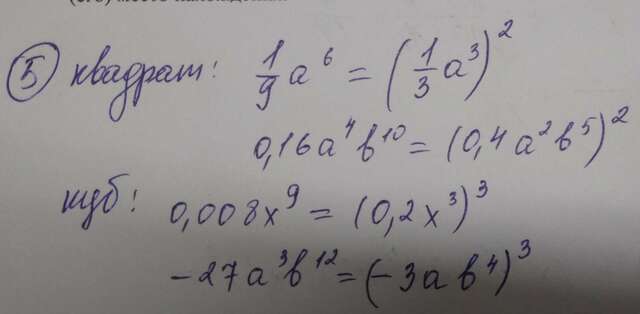 ⑤ квадрат: 1/9 a⁶ = (1/3 a³)²
0,16a⁴b¹⁰ = (0,4a²b⁵)²
куб: 0,008x⁹ = (0,2x³)³
-27a³b¹² = (-3ab⁴)³